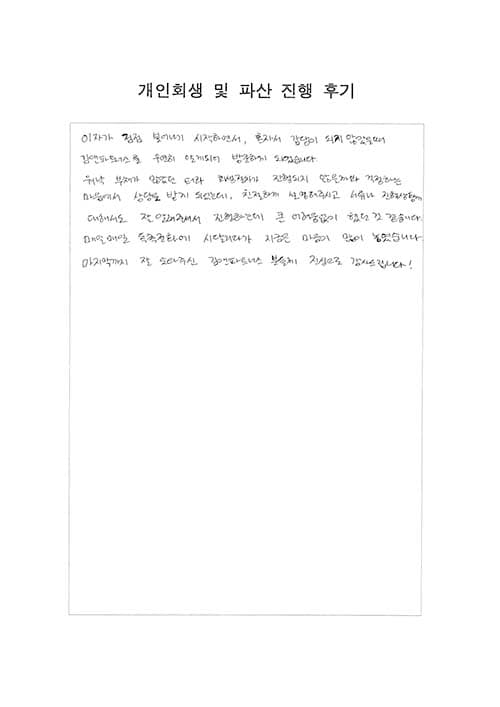 개인회생 및 파산 진행 후기
이자가 점점 불어나기 시작하면서, 혼자서 감당이 되지 않았을때
김앤파트너스를 우연히 알게되어 방문하게 되었습니다
워낙 부채가 많았던 터라 회생절차가 진행되지 않을까봐 걱정하는
마음에서 상담을 받게 되었는데, 친절하게 설명해주시고 서류나 진행상황에
대해서도 잘 알려주셔서 진행하는데 큰 어려움없이 했던 것 같습니다.
매일매일 독촉전화에 시달리다가 지금은 마음이 많이 놓였습니다.
마지막까지 잘 도와주신 김앤파트너스 분들께 진심으로 감사드립니다!